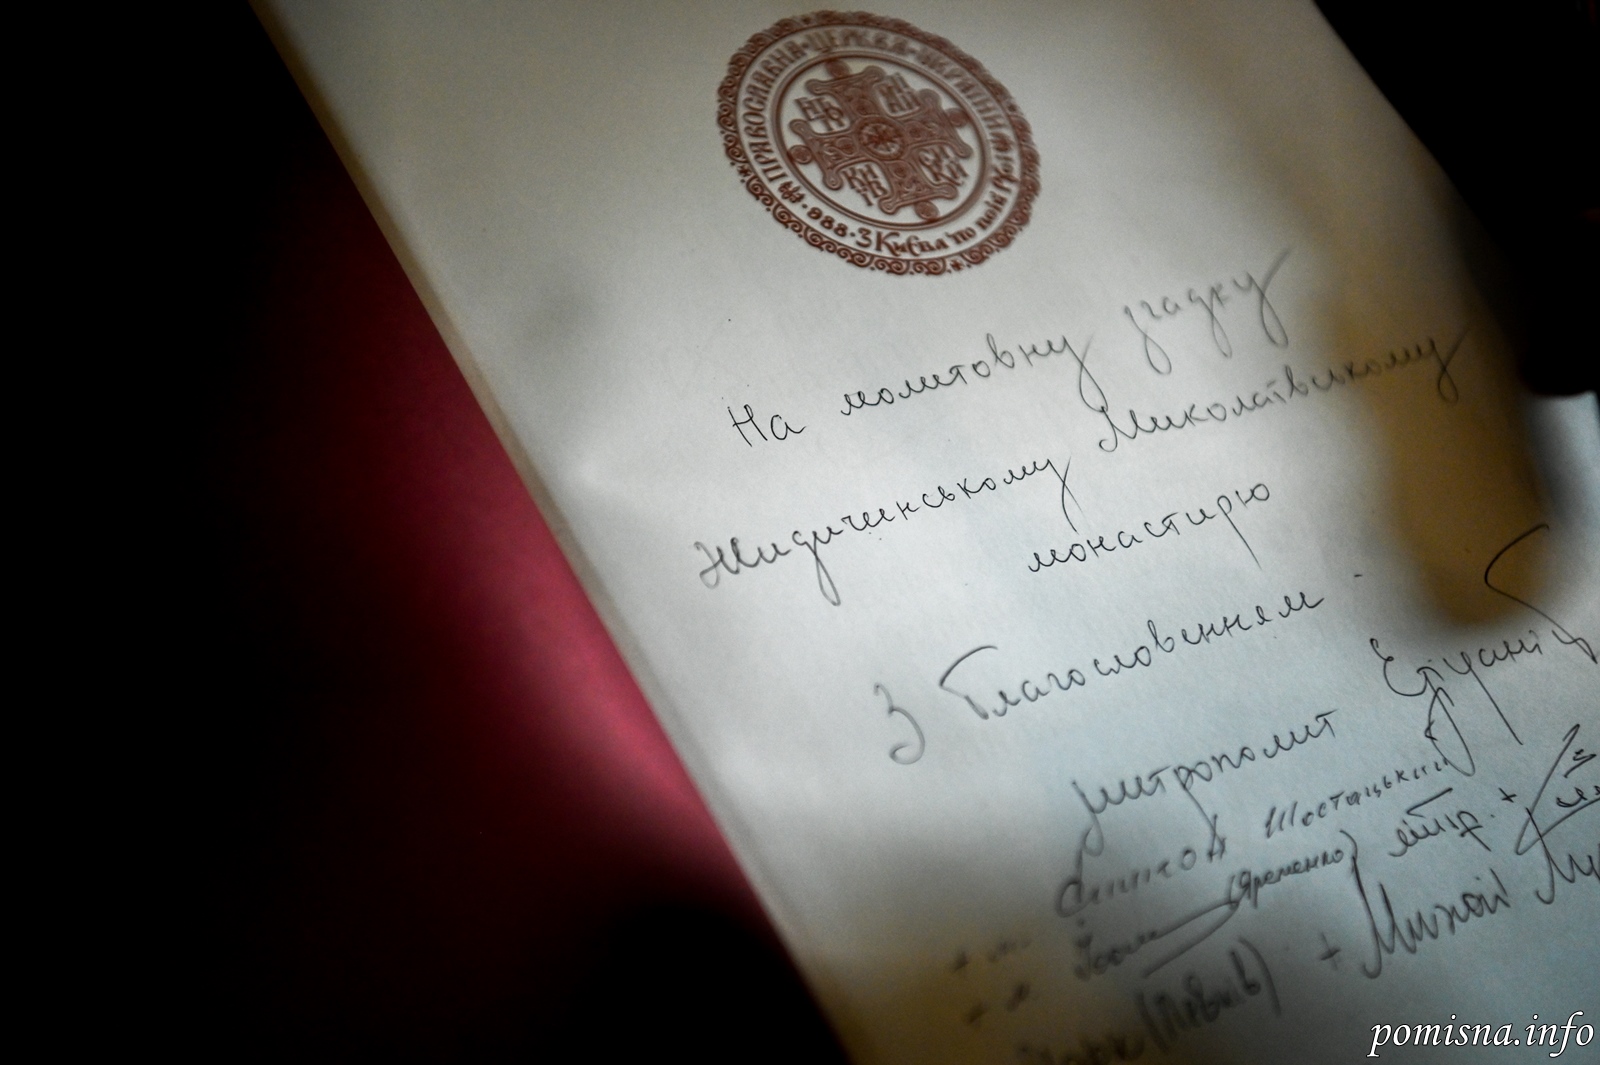 ПРАВОСЛАВНА · ЦЕРКВА · УКРАЇНИ
988 · З Києва по всій Русі
На молитовну згадку
Жидичинському Миколаївському
монастирю
З благословенням
митрополит Епіфаній
Симеон Шостацький
(Яременко) митр. +
+ Михаїл
pomisna.info